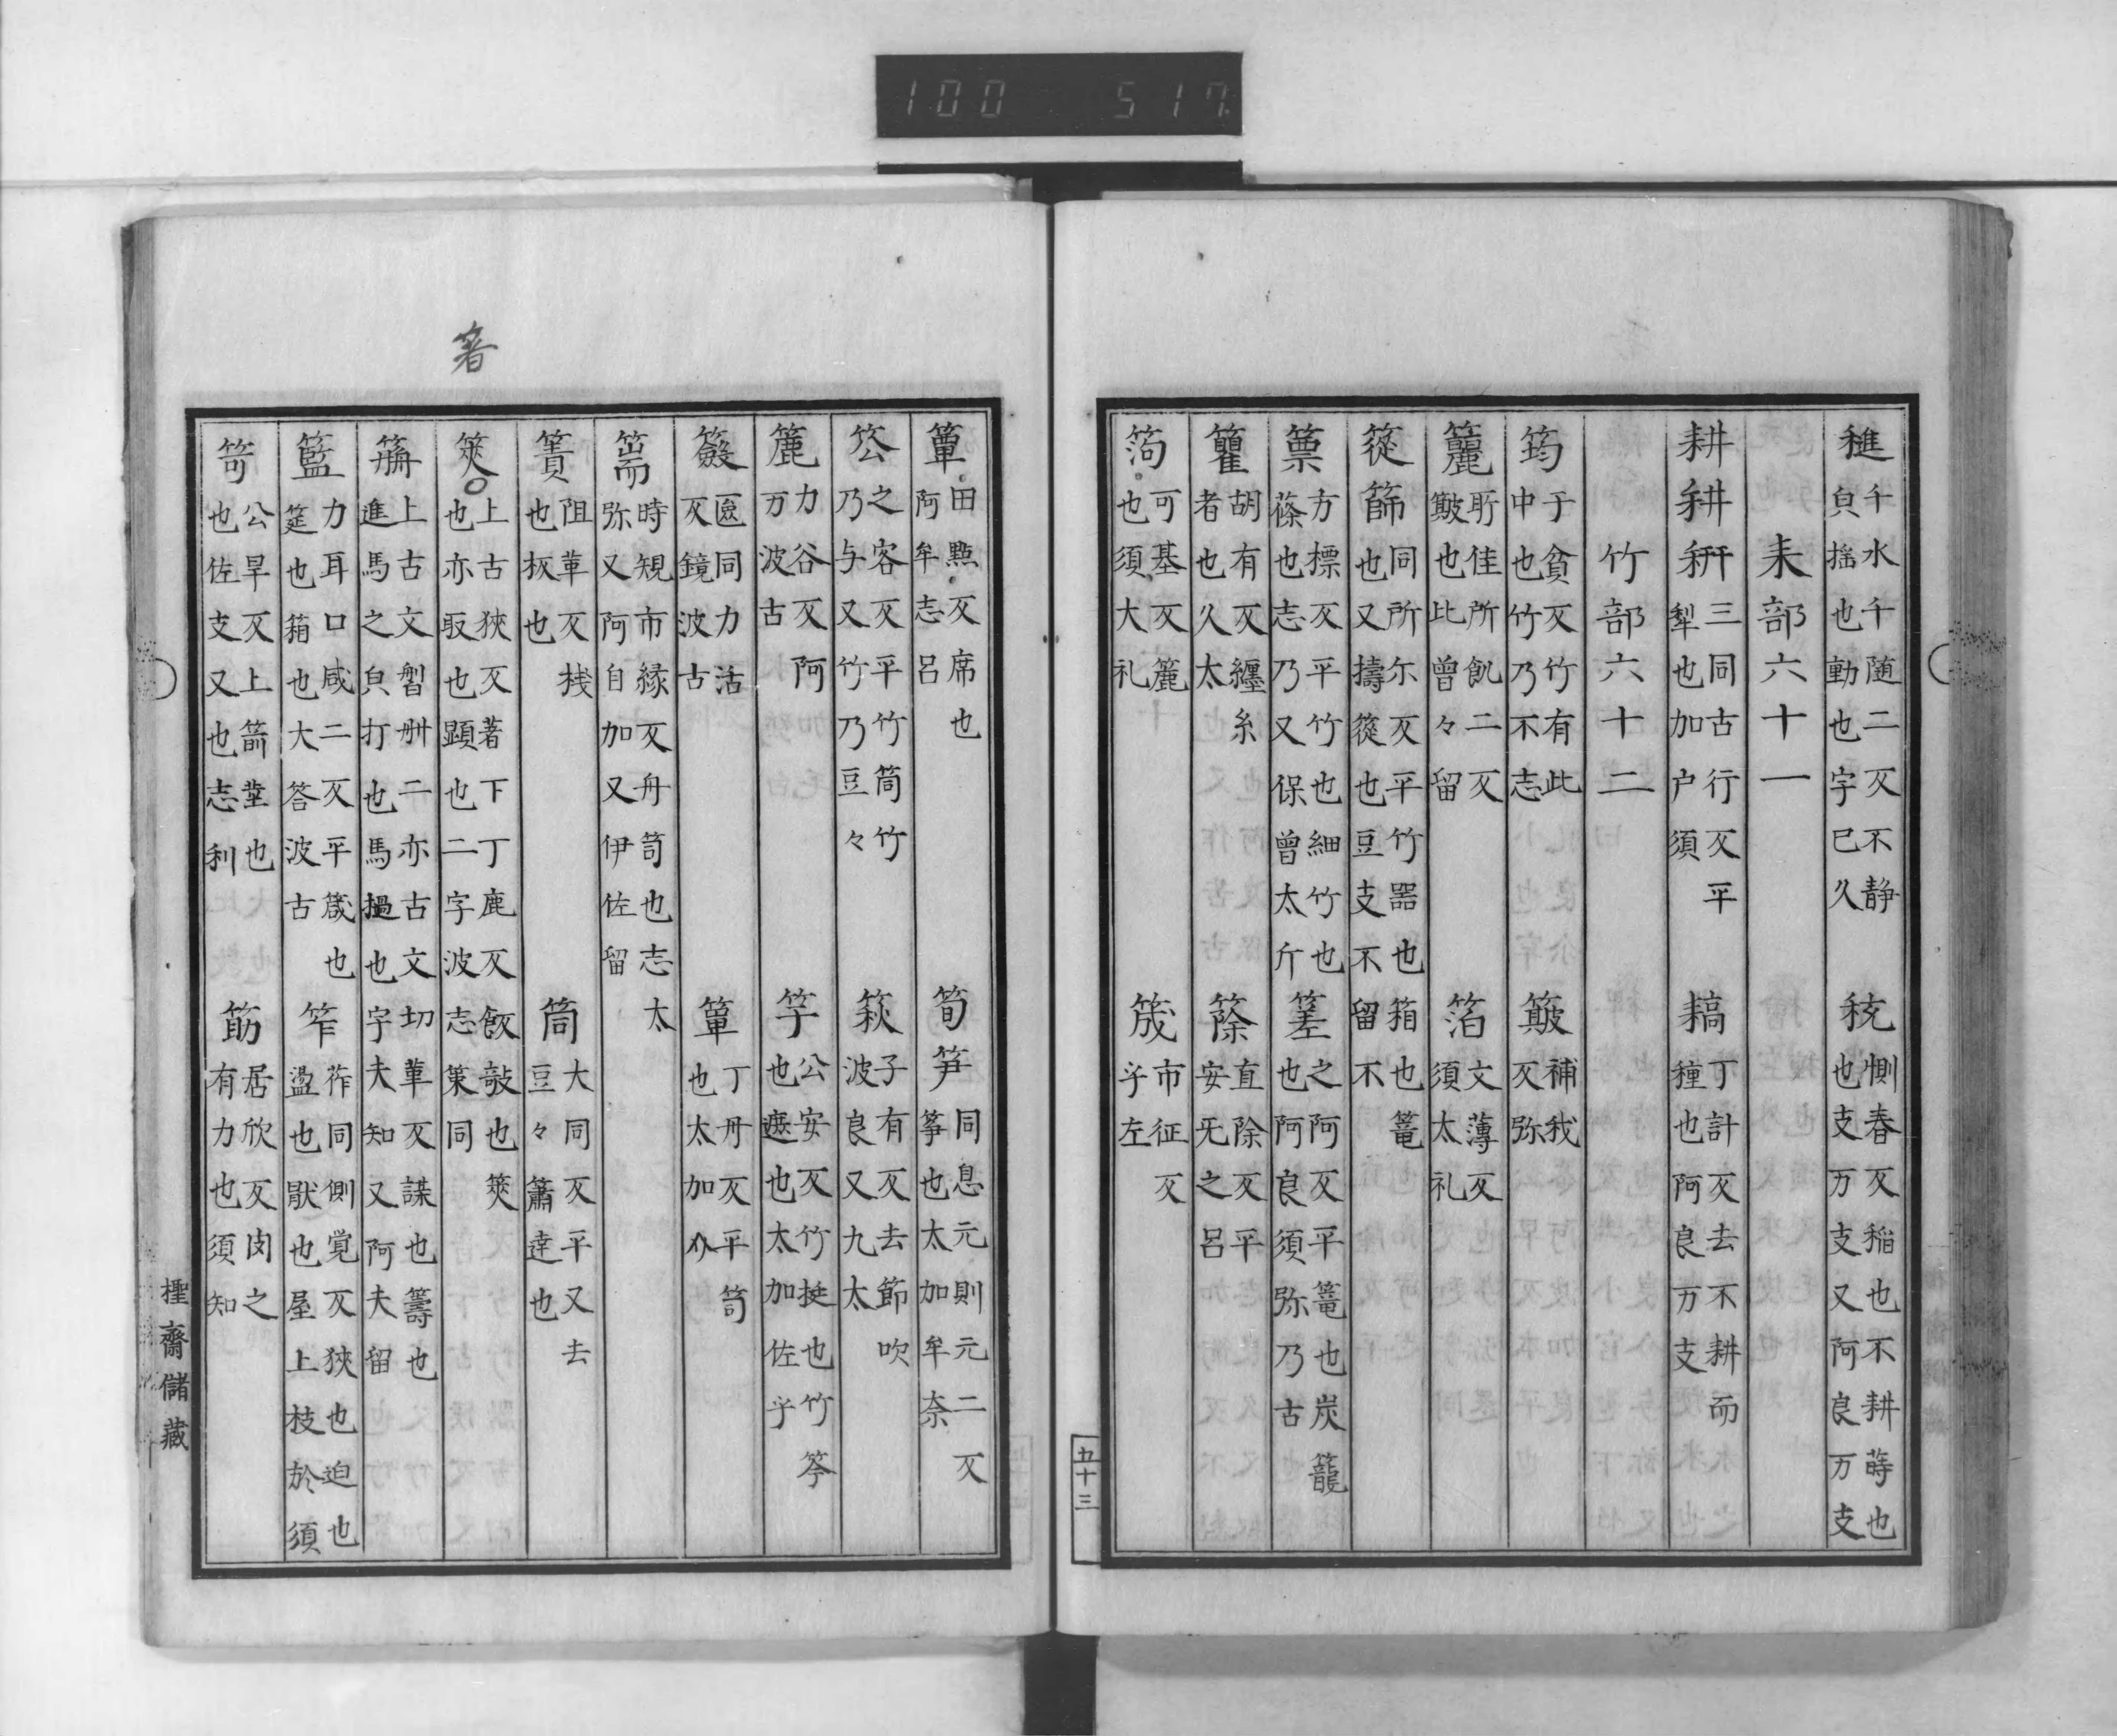 100 517
𥡴 千水千随二反不静
㒵揺也動也字已久
秐 惻春反稲也不耕蒔也
也支万支又阿良万支
耒部六十一
耕 耕 秆 三同古行反平
犁也加户須
耩 丁計反去不耕而
種也阿良万支
竹部六十二
筠 于貧反竹有此
中也竹乃不志
簸 補我
反弥
籭 所佳所飢二反
簸也比曾々留
箔 文薄反
須太礼
簁 篩 同所尓反平竹器也箱也篭
也又擣簁也豆支不留不
篻 方標反平竹也細竹也
蓧也志乃又保曾太斤
䇹 之阿反平篭也炭籠
也阿良須弥乃古
籊 胡有反纏糸
者也久太
篨 直除反平
安无之呂
笱 可基反簏
也須大礼
筬 市征反
乎左
五十三
簟 田㸃反席也
阿牟志呂
筍 笋 同息元則元二反
筝也太加牟奈
㕬 之容反平竹筒竹
乃与又竹乃豆々
篍 子有反去節吹
波良又九太
簏 力谷反阿
万波古
竿 公安反竹挺也竹笭
也遮也太加佐乎
籢 匳同力沽
反鏡波古
簞 丁丹反平笥
也太加介
篅 時規市縁反舟笥也志太
弥又阿自加又伊佐留
簀 阻革反棧
也板也
筒 大同反平又去
豆々簫達也
箸
筴 上古狹反著下丁鹿反飯敧也筴
也亦取也顕也二字波志策同
箳 上古文䂞冊二亦古文切革反謀也籌也
進馬之㒵打也馬撾也字夫知又阿夫留
籃 力耳口咸二反平箴也
筵也箱也大答波古
笮 莋同側覚反狹也迫也
盪也猒也屋上枝於須
笴 公旱反上箭莖也
也佐支又也志利
筋 居欣反肉之
有力也須知
㮙齋儲藏